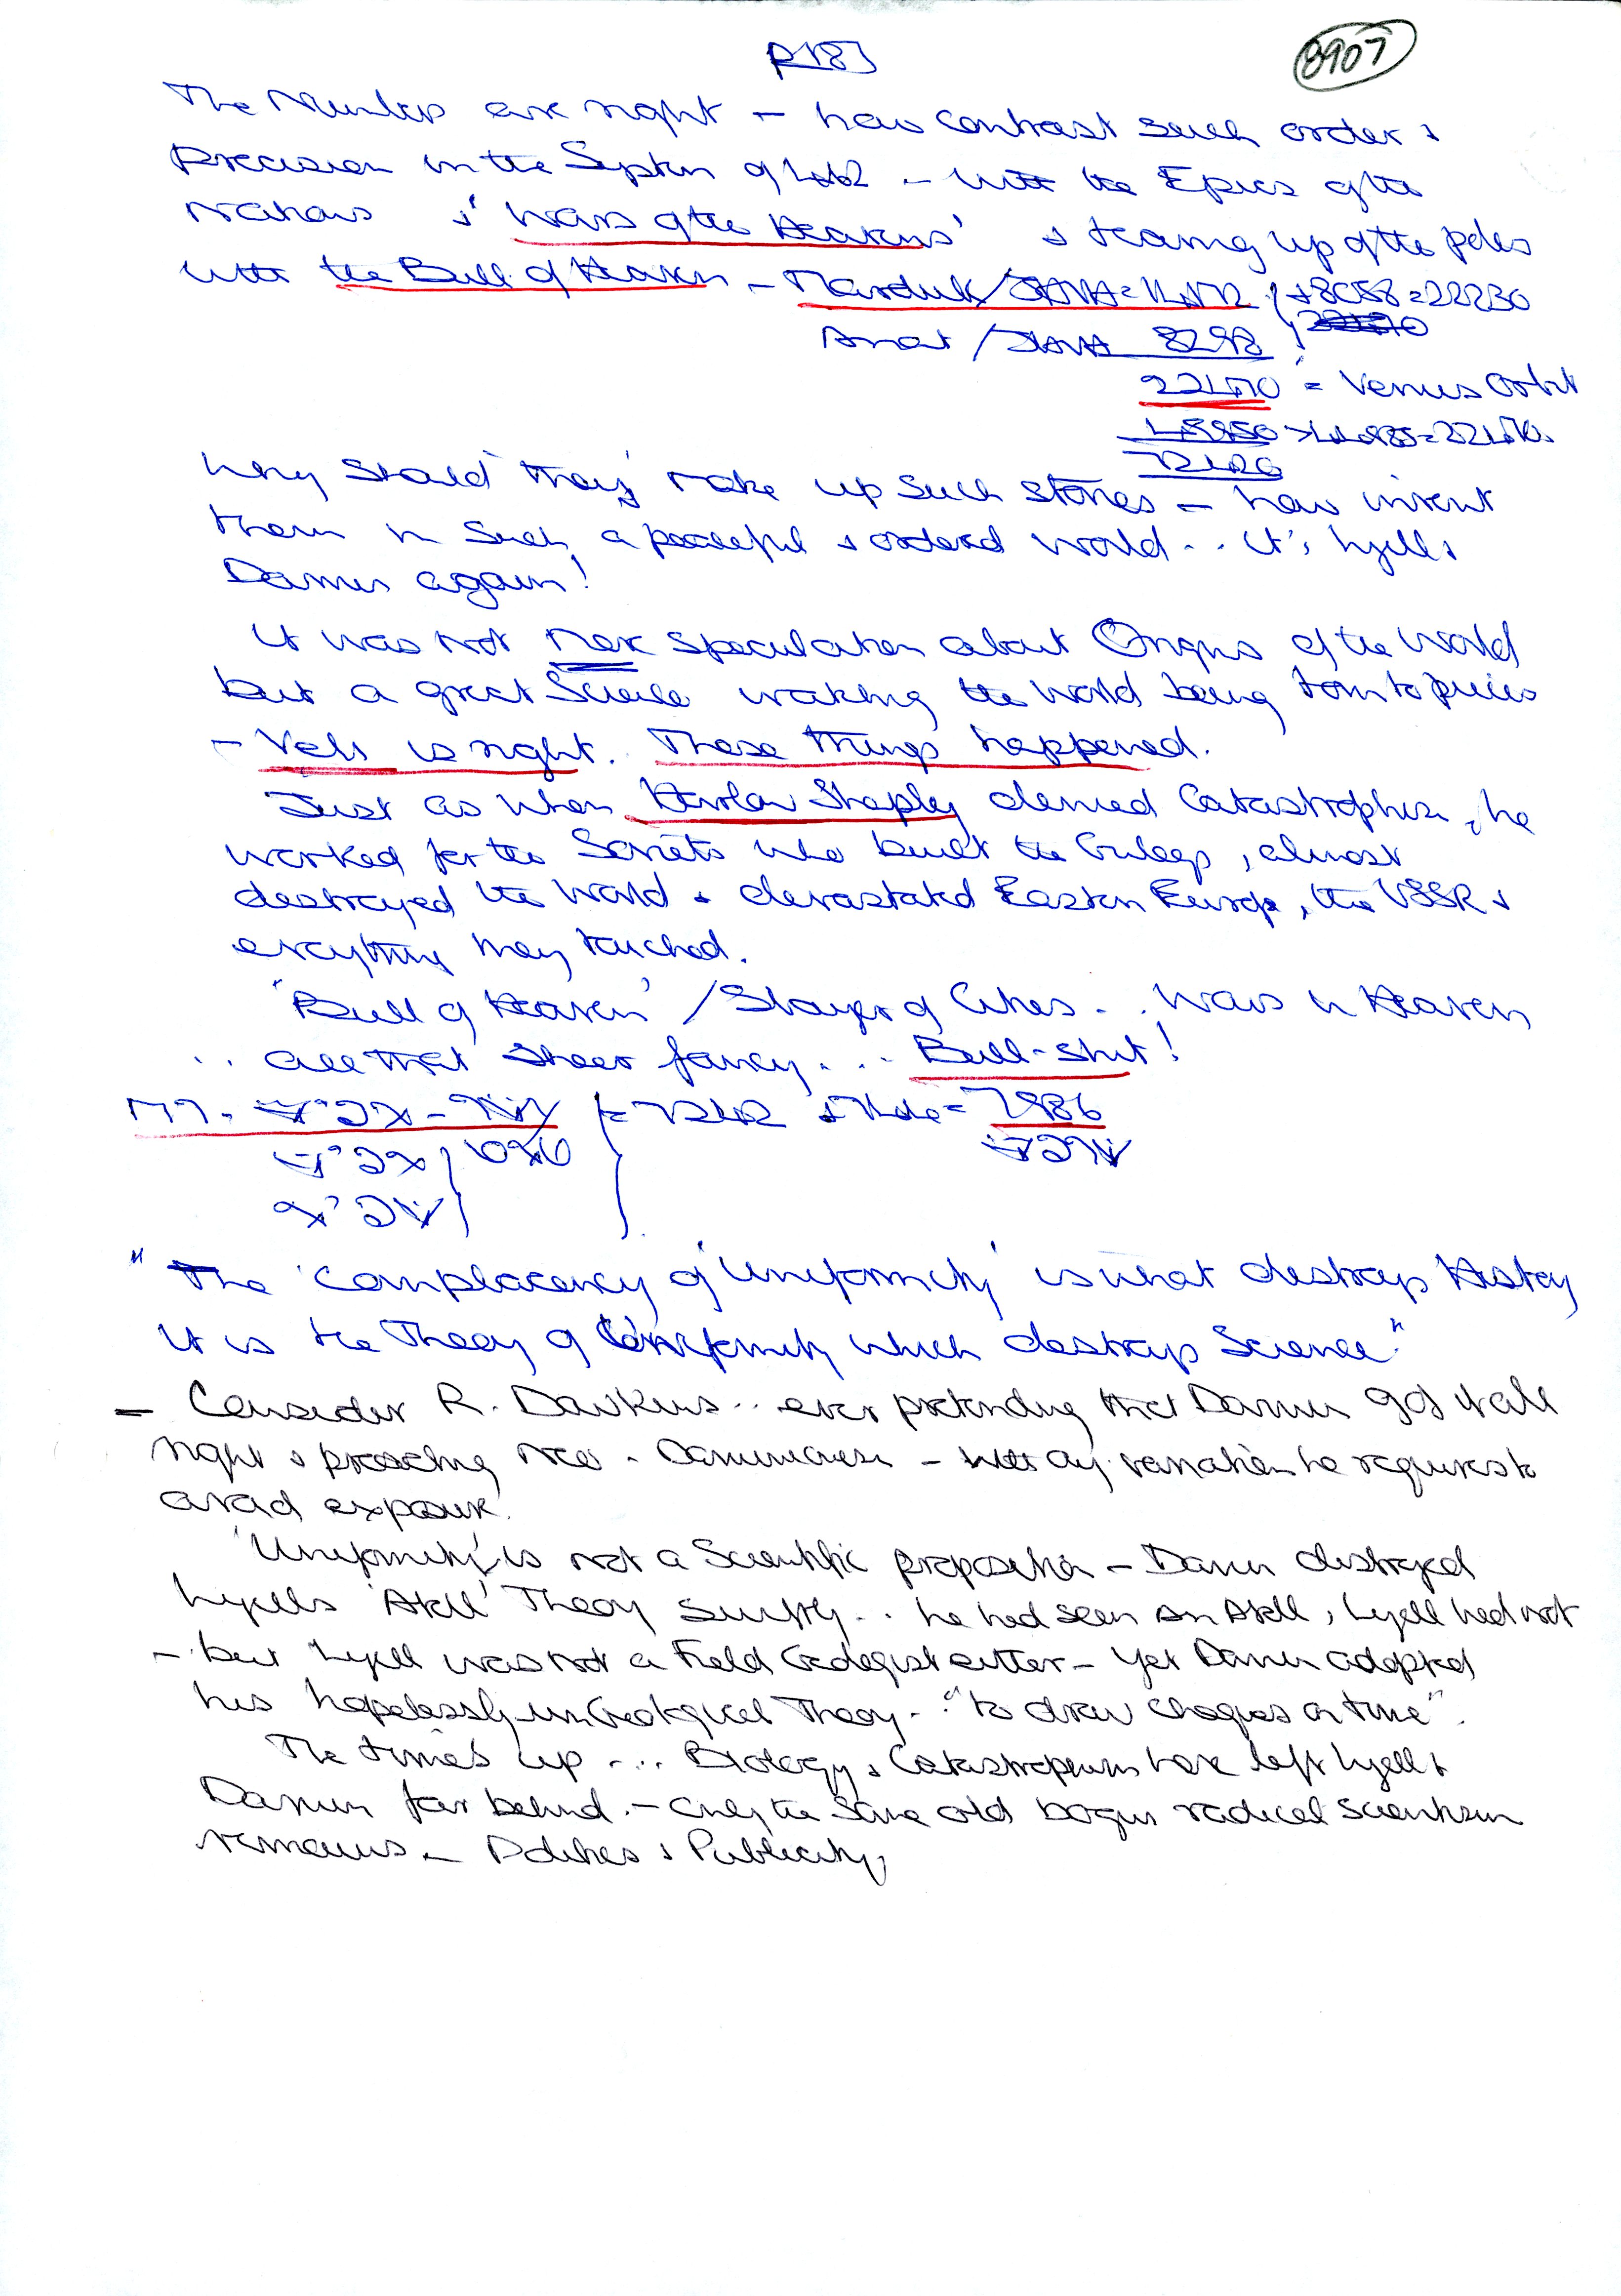 p183
8907
The Numbers are right – how contrast such order &
Precision in the System of – with the Epics of the
Nations & 'Wars of the Heavens' & tearing up of the poles
with the Bull of Heaven – Marduk/ + 8058 = 22230
Anat / 8298
= Venus Orbit
Why should 'they' make up such stories – how invent
them in such a peaceful & ordered world .. It's Lyell &
Darwin again!
It was not mere speculation about Origins of the World
but a great Science watching the world being torn to pieces
– Veli is right. These things happened.
Just as when Harlow Shapley denied Catastrophism, he
worked for the Soviets who built the Gulags, almost
destroyed the World & devastated Eastern Europe, the USSR &
everything they touched.
'Bull of Heaven' / of Cities .. Wars in Heaven
.. all that sheer fancy ... Bull-shit!
= 7986
"The 'Complacency of 'Uniformity' is what destroys History
It is the Theory of Uniformity which destroys Science"
– Consider R. Dawkins .. ever pretending that Darwin got it all
right & preaching Neo-Darwinism – with any variation he requires to
avoid exposure.
'Uniformity' is not a Scientific proposition – Darwin destroyed
Lyell's 'Atoll' Theory swiftly .. he had seen an Atoll, Lyell had not
– but Lyell was not a Field Geologist either – yet Darwin adopted
his hopelessly un-Geological Theory .. "to draw cheques on time".
The time's up ... Biology & Catastrophism have left Lyell &
Darwin far behind – only the same old bogus radical scientism
remains – Politics & Publicity,